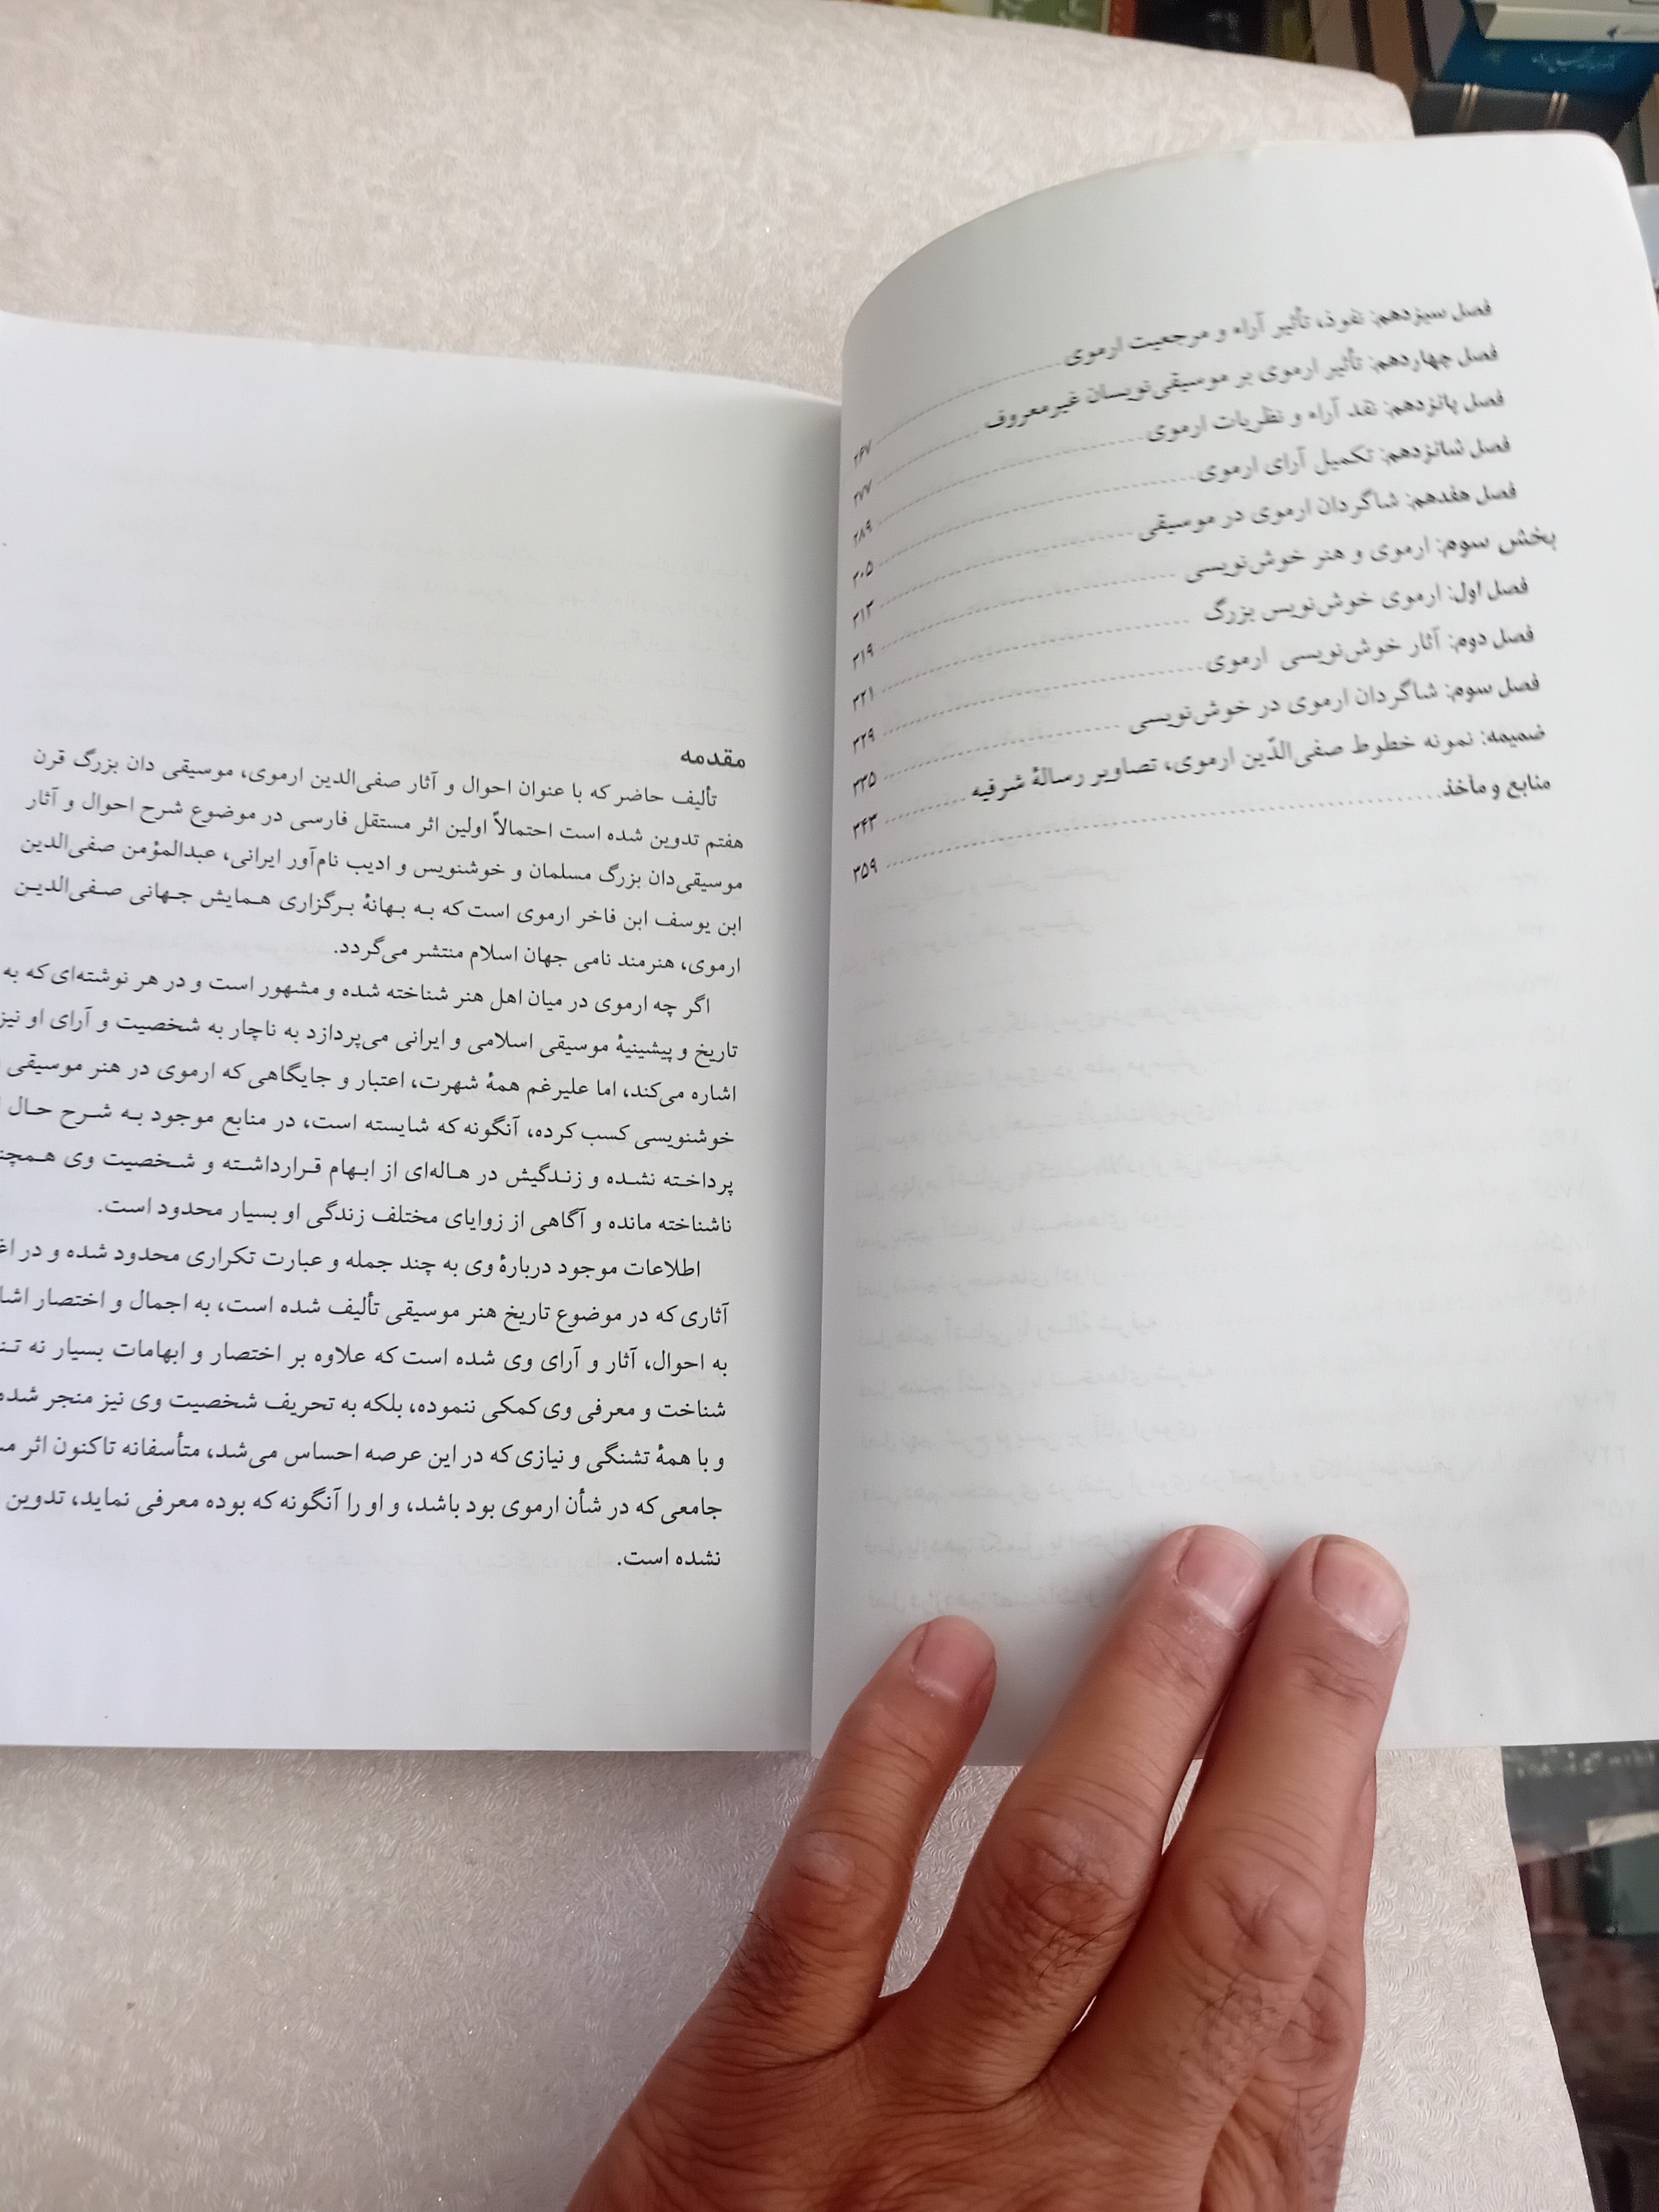 فصل سیزدهم: نفوذ، تأثیر آراء و مرجعیت ارموی ........ ۲۶۷
فصل چهاردهم: تأثیر ارموی بر موسیقی‌نویسان غیرمعروف ........ ۲۷۷
فصل پانزدهم: نقد آراء و نظریات ارموی ........ ۲۸۹
فصل شانزدهم: تکمیل آرای ارموی ........ ۳۰۵
فصل هفدهم: شاگردان ارموی در موسیقی ........ ۳۱۳
بخش سوم: ارموی و هنر خوش‌نویسی ........ ۳۱۹
فصل اول: ارموی خوش‌نویس بزرگ ........ ۳۲۱
فصل دوم: آثار خوش‌نویسی ارموی ........ ۳۲۹
فصل سوم: شاگردان ارموی در خوش‌نویسی ........ ۳۳۵
ضمیمه: نمونه خطوط صفی‌الدّین ارموی، تصاویر رسالهٔ شرفیه ........ ۳۴۳
منابع و مآخذ ........ ۳۵۹
مقدمه
تألیف حاضر که با عنوان احوال و آثار صفی‌الدین ارموی، موسیقی دان بزرگ قرن
هفتم تدوین شده است احتمالاً اولین اثر مستقل فارسی در موضوع شرح احوال و آثار
موسیقی‌دان بزرگ مسلمان و خوشنویس و ادیب نام‌آور ایرانی، عبدالمؤمن صفی‌الدین
ابن یوسف ابن فاخر ارموی است که به بهانهٔ برگزاری همایش جهانی صفی‌الدین
ارموی، هنرمند نامی جهان اسلام منتشر می‌گردد.
اگر چه ارموی در میان اهل هنر شناخته شده و مشهور است و در هر نوشته‌ای که به
تاریخ و پیشینیهٔ موسیقی اسلامی و ایرانی می‌پردازد به ناچار به شخصیت و آرای او نیز
اشاره می‌کند، اما علیرغم همهٔ شهرت، اعتبار و جایگاهی که ارموی در هنر موسیقی
خوشنویسی کسب کرده، آنگونه که شایسته است، در منابع موجود به شرح حال
پرداخته نشده و زندگیش در هاله‌ای از ابهام قرارداشته و شخصیت وی
ناشناخته مانده و آگاهی از زوایای مختلف زندگی او بسیار محدود است.
اطلاعات موجود دربارهٔ وی به چند جمله و عبارت تکراری محدود شده و در
آثاری که در موضوع تاریخ هنر موسیقی تألیف شده است، به اجمال و اختصار
به احوال، آثار و آرای وی شده است که علاوه بر اختصار و ابهامات بسیار نه
شناخت و معرفی وی کمکی ننموده، بلکه به تحریف شخصیت وی نیز منجر شده
و با همهٔ تشنگی و نیازی که در این عرصه احساس می‌شد، متأسفانه تاکنون اثر
جامعی که در شأن ارموی بود باشد، و او را آنگونه که بوده معرفی نماید، تدوین
نشده است.